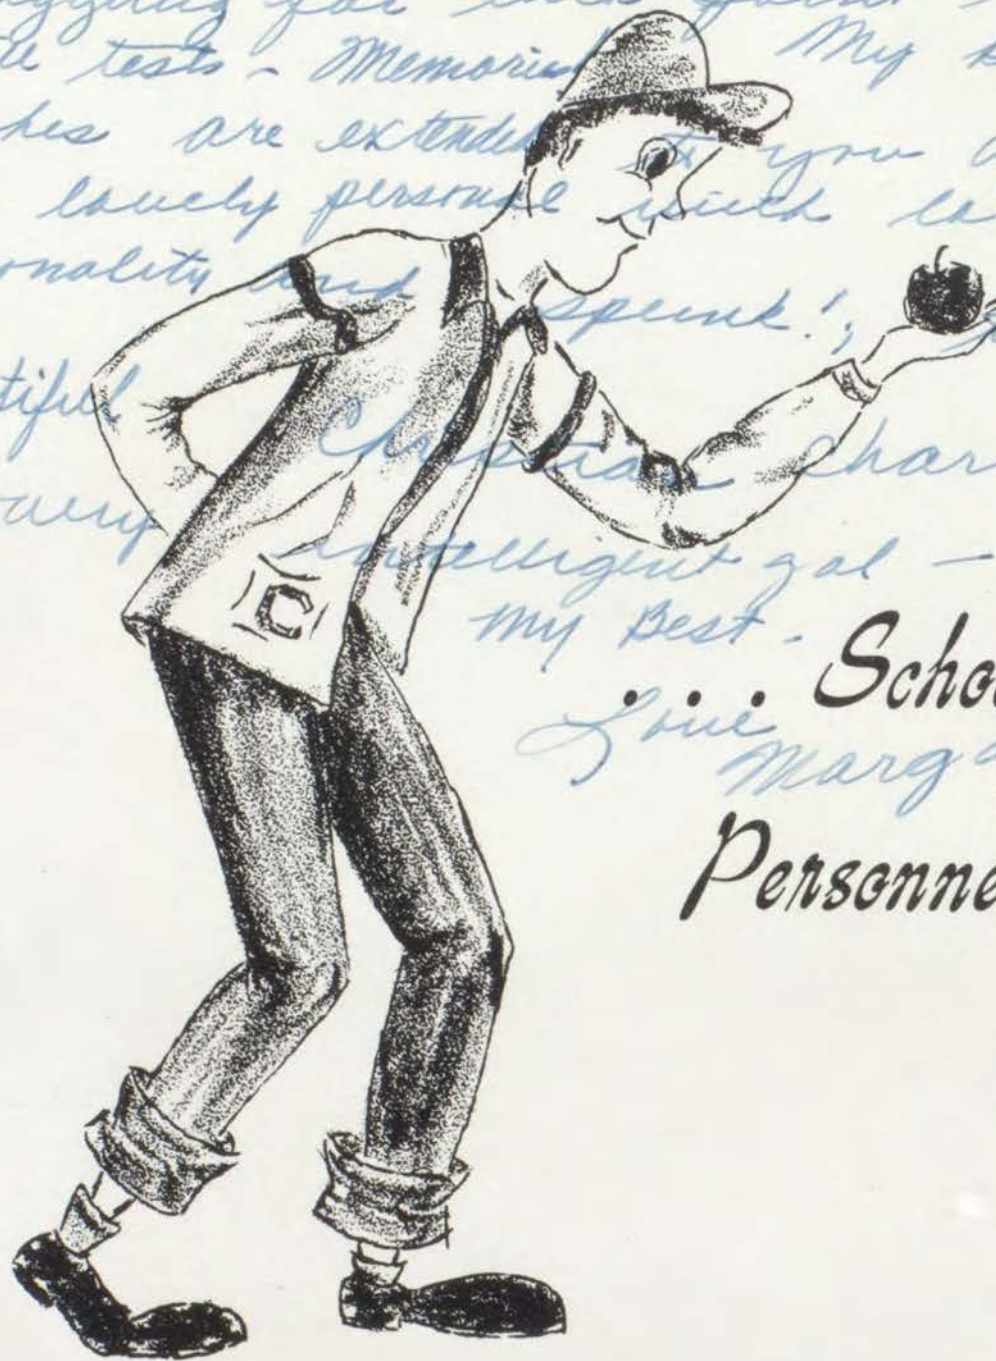 for
tests - Memories My
hes are extended to you
lovely personal which
onality and spunk!,
tiful Christian Char
very intelligent gal -
C
My Best -
... Scho
Love
Marga
Personne